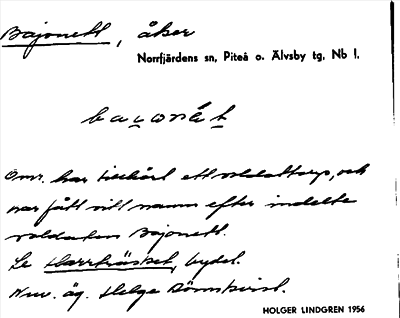 Bajonett, åker
Norrfjärdens sn, Piteå o. Älvsby tg, Nb l.
bayonät
Omr. har tillhört ett soldattorp, och
har fått sitt namn efter indelte
soldaten Bajonett.
Se Harrträsket, bydel.
Nuv. äg. Helge Rönnkvist.
HOLGER LINDGREN 1956